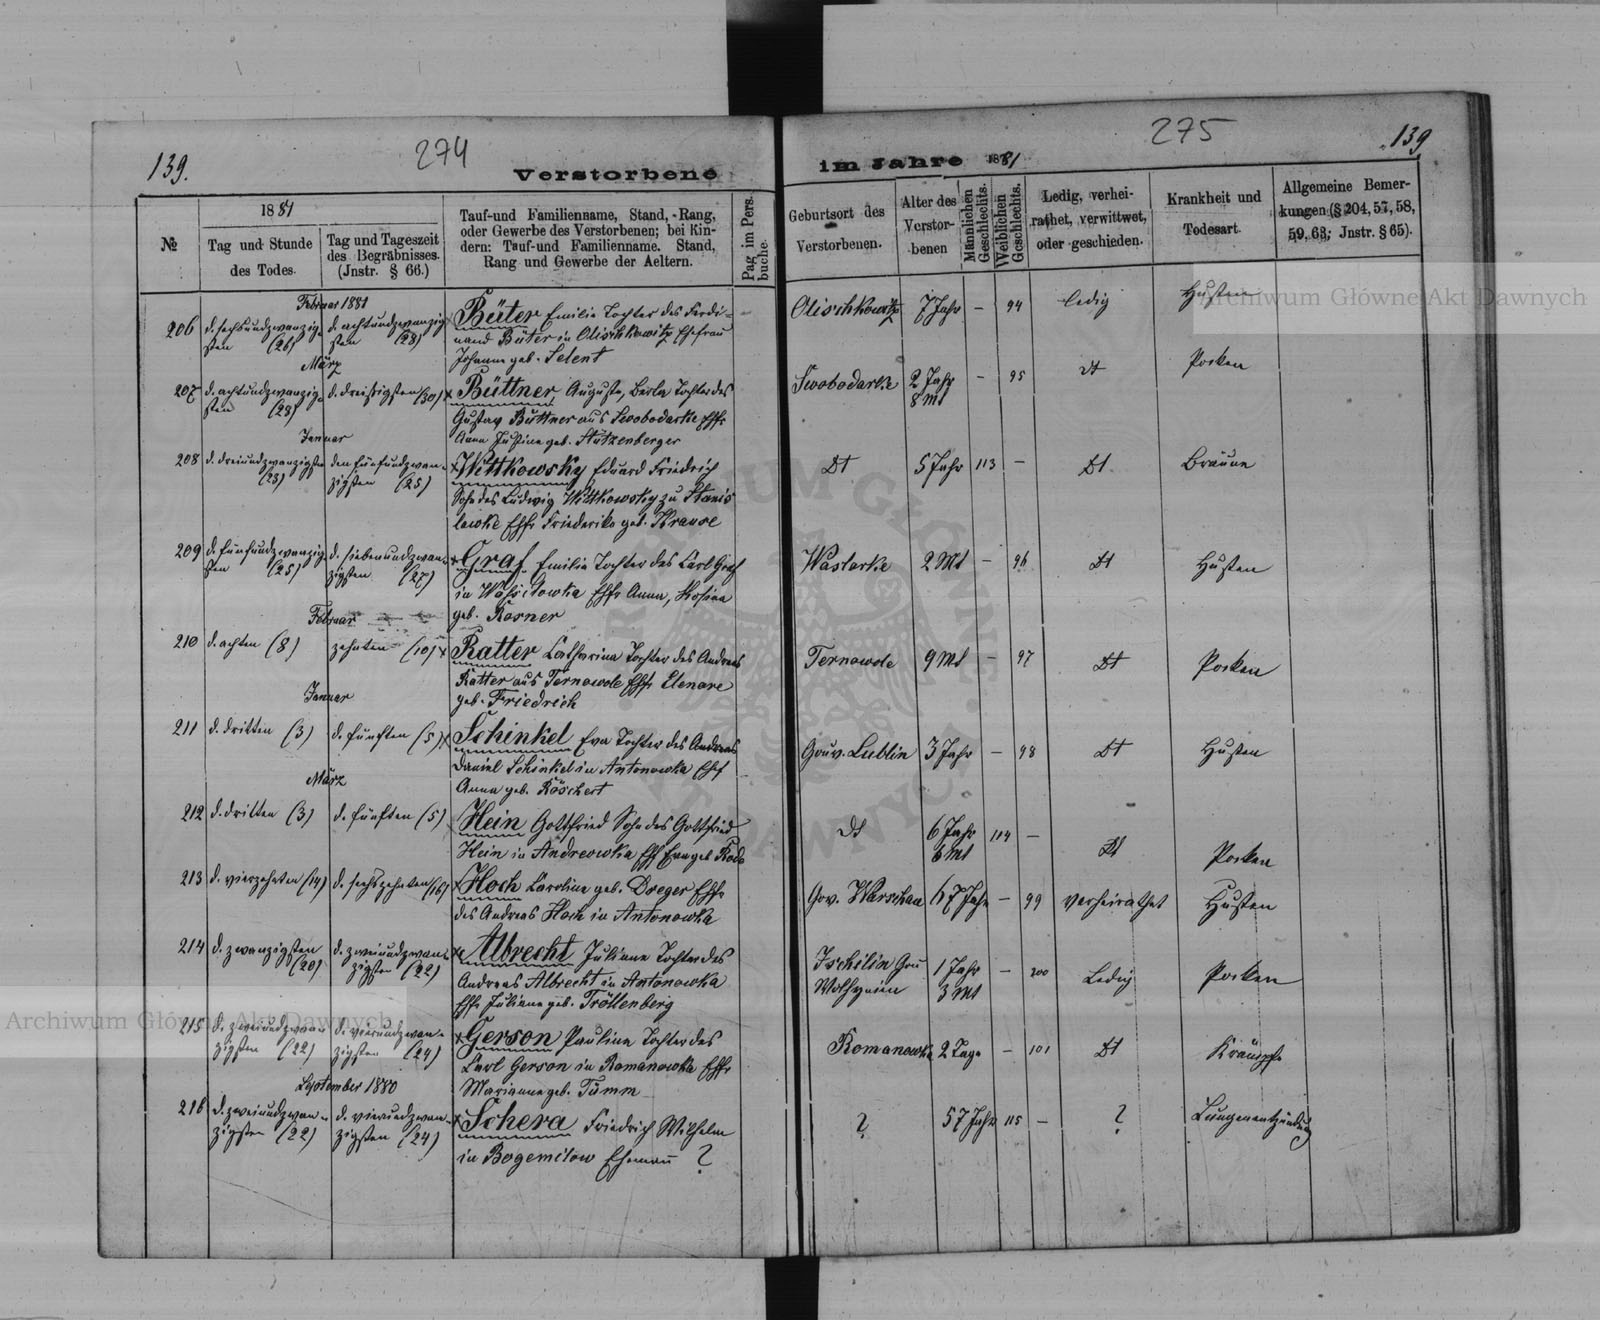 139.
274
Verstorbene
№
1881
Tag und Stunde
des Todes.
Tag und Tageszeit
des Begräbnisses.
(Jnstr. § 66.)
Tauf-und Familienname, Stand, Rang,
oder Gewerbe des Verstorbenen; bei Kin-
dern: Tauf-und Familienname. Stand,
Rang und Gewerbe der Aeltern.
Pag im Pers.
buche.
Februar 1881
206 d. sechsundzwanzig- d. achtundzwanzig- Büter Emilie Tochter des Ferdi-
sten (26) sten (28) nand Büter in Olischkowitz Ehefrau
Johanne geb. Selent
März
207 d. achtundzwanzig- d. dreißigsten (30) Büttner, Auguste, Berta Tochter des
sten (28) Gustav Büttner aus Swobodarke Ehfr
Anna Justine geb. Stützenberger
Januar
208 d. dreiundzwanzigsten den fünfundzwan- Wittkowsky Eduard Friedrich
(23) zigsten (25) Sohn des Ludwig Wittkowsky zu Stanis
lawke Ehfr Friederike geb. Krause
209 d. fünfundzwanzig- d. siebenundzwan- Graf Emilie Tochter des Carl Graf
sten (25) zigsten (27) in Ehfr Anna, Rosine
geb. Rosner
Februar
210 d. achten (8) zehnten (10) Ratter Catharina Tochter des Andreas
Ratter aus Ternowde Ehfr Elenore
geb. Friedrich
Januar
211 d. dritten (3) d. fünften (5) Schinkel Eva Tochter des Andreas
Daniel Schinkel in Antonowka Ehf
Anna geb. Röschert
März
212 d. dritten (3) d. fünften (5) Hein Gottfried Sohn des Gottfried
Hein in Andreowka Ehf Eva geb. Rode
213 d. vierzehnten (14) d. sechszehnten (16) Hoch Caroline geb. Dreger Ehfr
des Andreas Hoch in Antonowka
214 d. zwanzigsten d. zweiundzwan- Albrecht Juliane Tochter des
(20) zigsten (22) Andreas Albrecht in Antonowka
Ehfr Juliane geb. Tröllenberg
215 d. zweiundzwan- d. vierundzwan- Gerson Pauline Tochter des
zigsten (22) zigsten (24) Carl Gerson in Romanowka Ehfr
Marianne geb. Tumm
September 1880
216 d. zweiundzwan- d. vierundzwan- Schera Friedrich Wilhelm
zigsten (22) zigsten (24) in Bogemilow Ehemann ?
275
139
im Jahre 1881
Geburtsort des
Verstorbenen.
Alter des
Verstor-
benen
Männlichen
Geschlechts.
Weiblichen
Geschlechts.
Ledig, verhei-
rathet, verwittwet,
oder geschieden.
Krankheit und
Todesart.
Allgemeine Bemer-
kungen (§ 204, 57, 58,
59, 63; Jnstr. § 65).
Olischkowitz 7 Jahr – 94 ledig Husten
Swobodarke 2 Jahr – 95 dt Pocken
8 Mt
Dt 5 Jahr 113 – Dt Bräune
Waslarke 2 Mt – 96 Dt Husten
Ternowde 9 Mt – 97 Dt Pocken
Gouv. Lublin 3 Jahr – 98 Dt Husten
Dt 6 Jahr 114 – Dt Pocken
6 Mt
Gov. Warschau 67 Jahr – 99 verheirathet Husten
Ischilin Gou 1 Jahr – 100 Ledig Pocken
Wolhynien 3 Mt
Romanowka 2 Tage – 101 Dt Krämpfe
? 57 Jahr 115 – ? Lungenentzündung
Archiwum Główne Akt Dawnych
Archiwum Główne Akt Dawnych